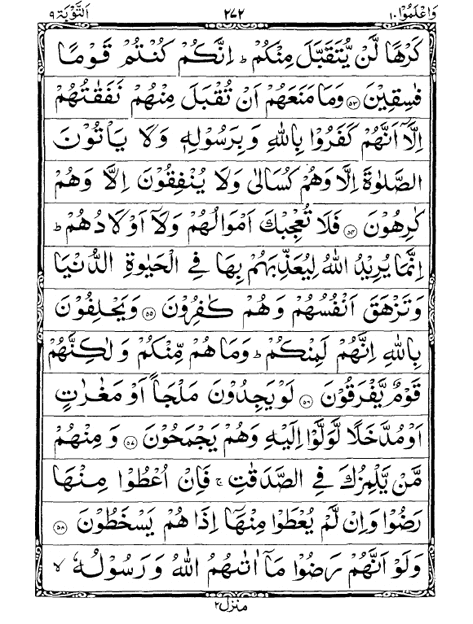 وَاعْلَمُوْٓا ١٠ ٢٧٢ اَلتَّوْبَة ٩
كَرْهًا لَّنْ يُّتَقَبَّلَ مِنْكُمْ ؕ اِنَّكُمْ كُنْتُمْ قَوْمًا
فٰسِقِيْنَ ﴿٥٣﴾ وَمَا مَنَعَهُمْ اَنْ تُقْبَلَ مِنْهُمْ نَفَقٰتُهُمْ
اِلَّآ اَنَّهُمْ كَفَرُوْا بِاللّٰهِ وَبِرَسُوْلِهٖ وَلَا يَاْتُوْنَ
الصَّلٰوةَ اِلَّا وَهُمْ كُسَالٰى وَلَا يُنْفِقُوْنَ اِلَّا وَهُمْ
كٰرِهُوْنَ ﴿٥٤﴾ فَلَا تُعْجِبْكَ اَمْوَالُهُمْ وَلَآ اَوْلَادُهُمْ ؕ
اِنَّمَا يُرِيْدُ اللّٰهُ لِيُعَذِّبَهُمْ بِهَا فِى الْحَيٰوةِ الدُّنْيَا
وَتَزْهَقَ اَنْفُسُهُمْ وَهُمْ كٰفِرُوْنَ ﴿٥٥﴾ وَيَحْلِفُوْنَ
بِاللّٰهِ اِنَّهُمْ لَمِنْكُمْ ؕ وَمَا هُمْ مِّنْكُمْ وَلٰكِنَّهُمْ
قَوْمٌ يَّفْرَقُوْنَ ﴿٥٦﴾ لَوْ يَجِدُوْنَ مَلْجَاً اَوْ مَغٰرٰتٍ
اَوْ مُدَّخَلًا لَّوَلَّوْا اِلَيْهِ وَهُمْ يَجْمَحُوْنَ ﴿٥٧﴾ وَمِنْهُمْ
مَّنْ يَّلْمِزُكَ فِى الصَّدَقٰتِ ۚ فَاِنْ اُعْطُوْا مِنْهَا
رَضُوْا وَاِنْ لَّمْ يُعْطَوْا مِنْهَآ اِذَا هُمْ يَسْخَطُوْنَ ﴿٥٨﴾
وَلَوْ اَنَّهُمْ رَضُوْا مَآ اٰتٰىهُمُ اللّٰهُ وَرَسُوْلُهٗ ۙ
منزل ٢